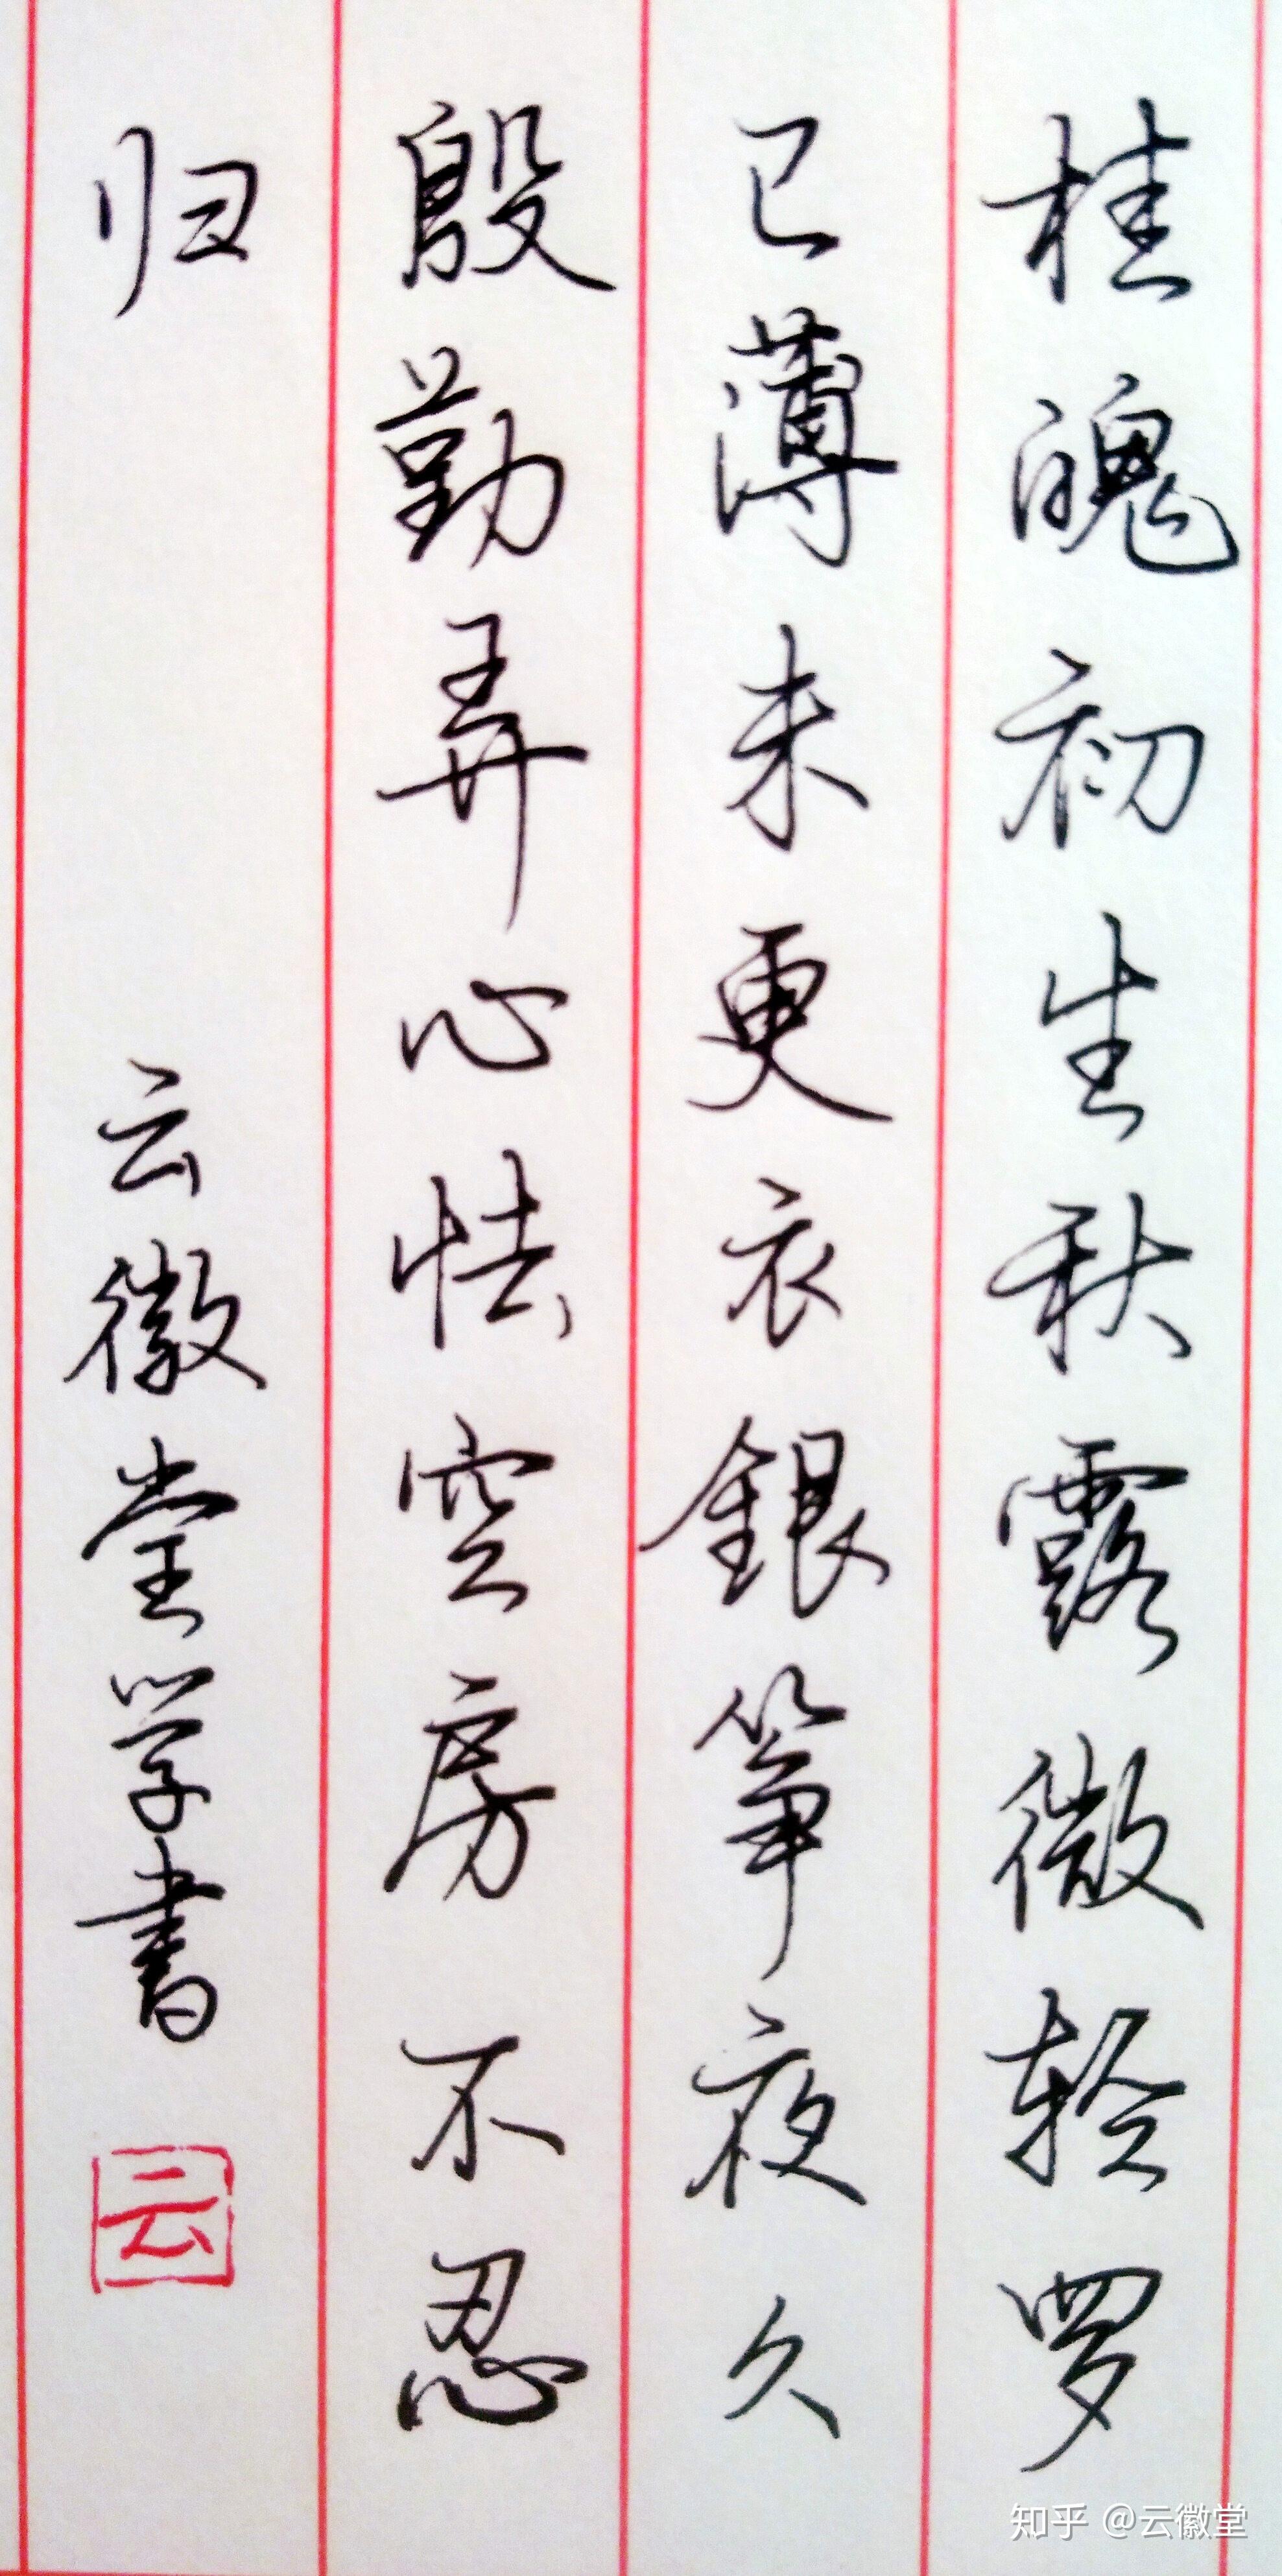 桂魄初生秋露微轻罗
已薄未更衣銀筝夜久
殷勤弄心怯空房不忍
归
云徽堂学書
云
知乎 @云徽堂